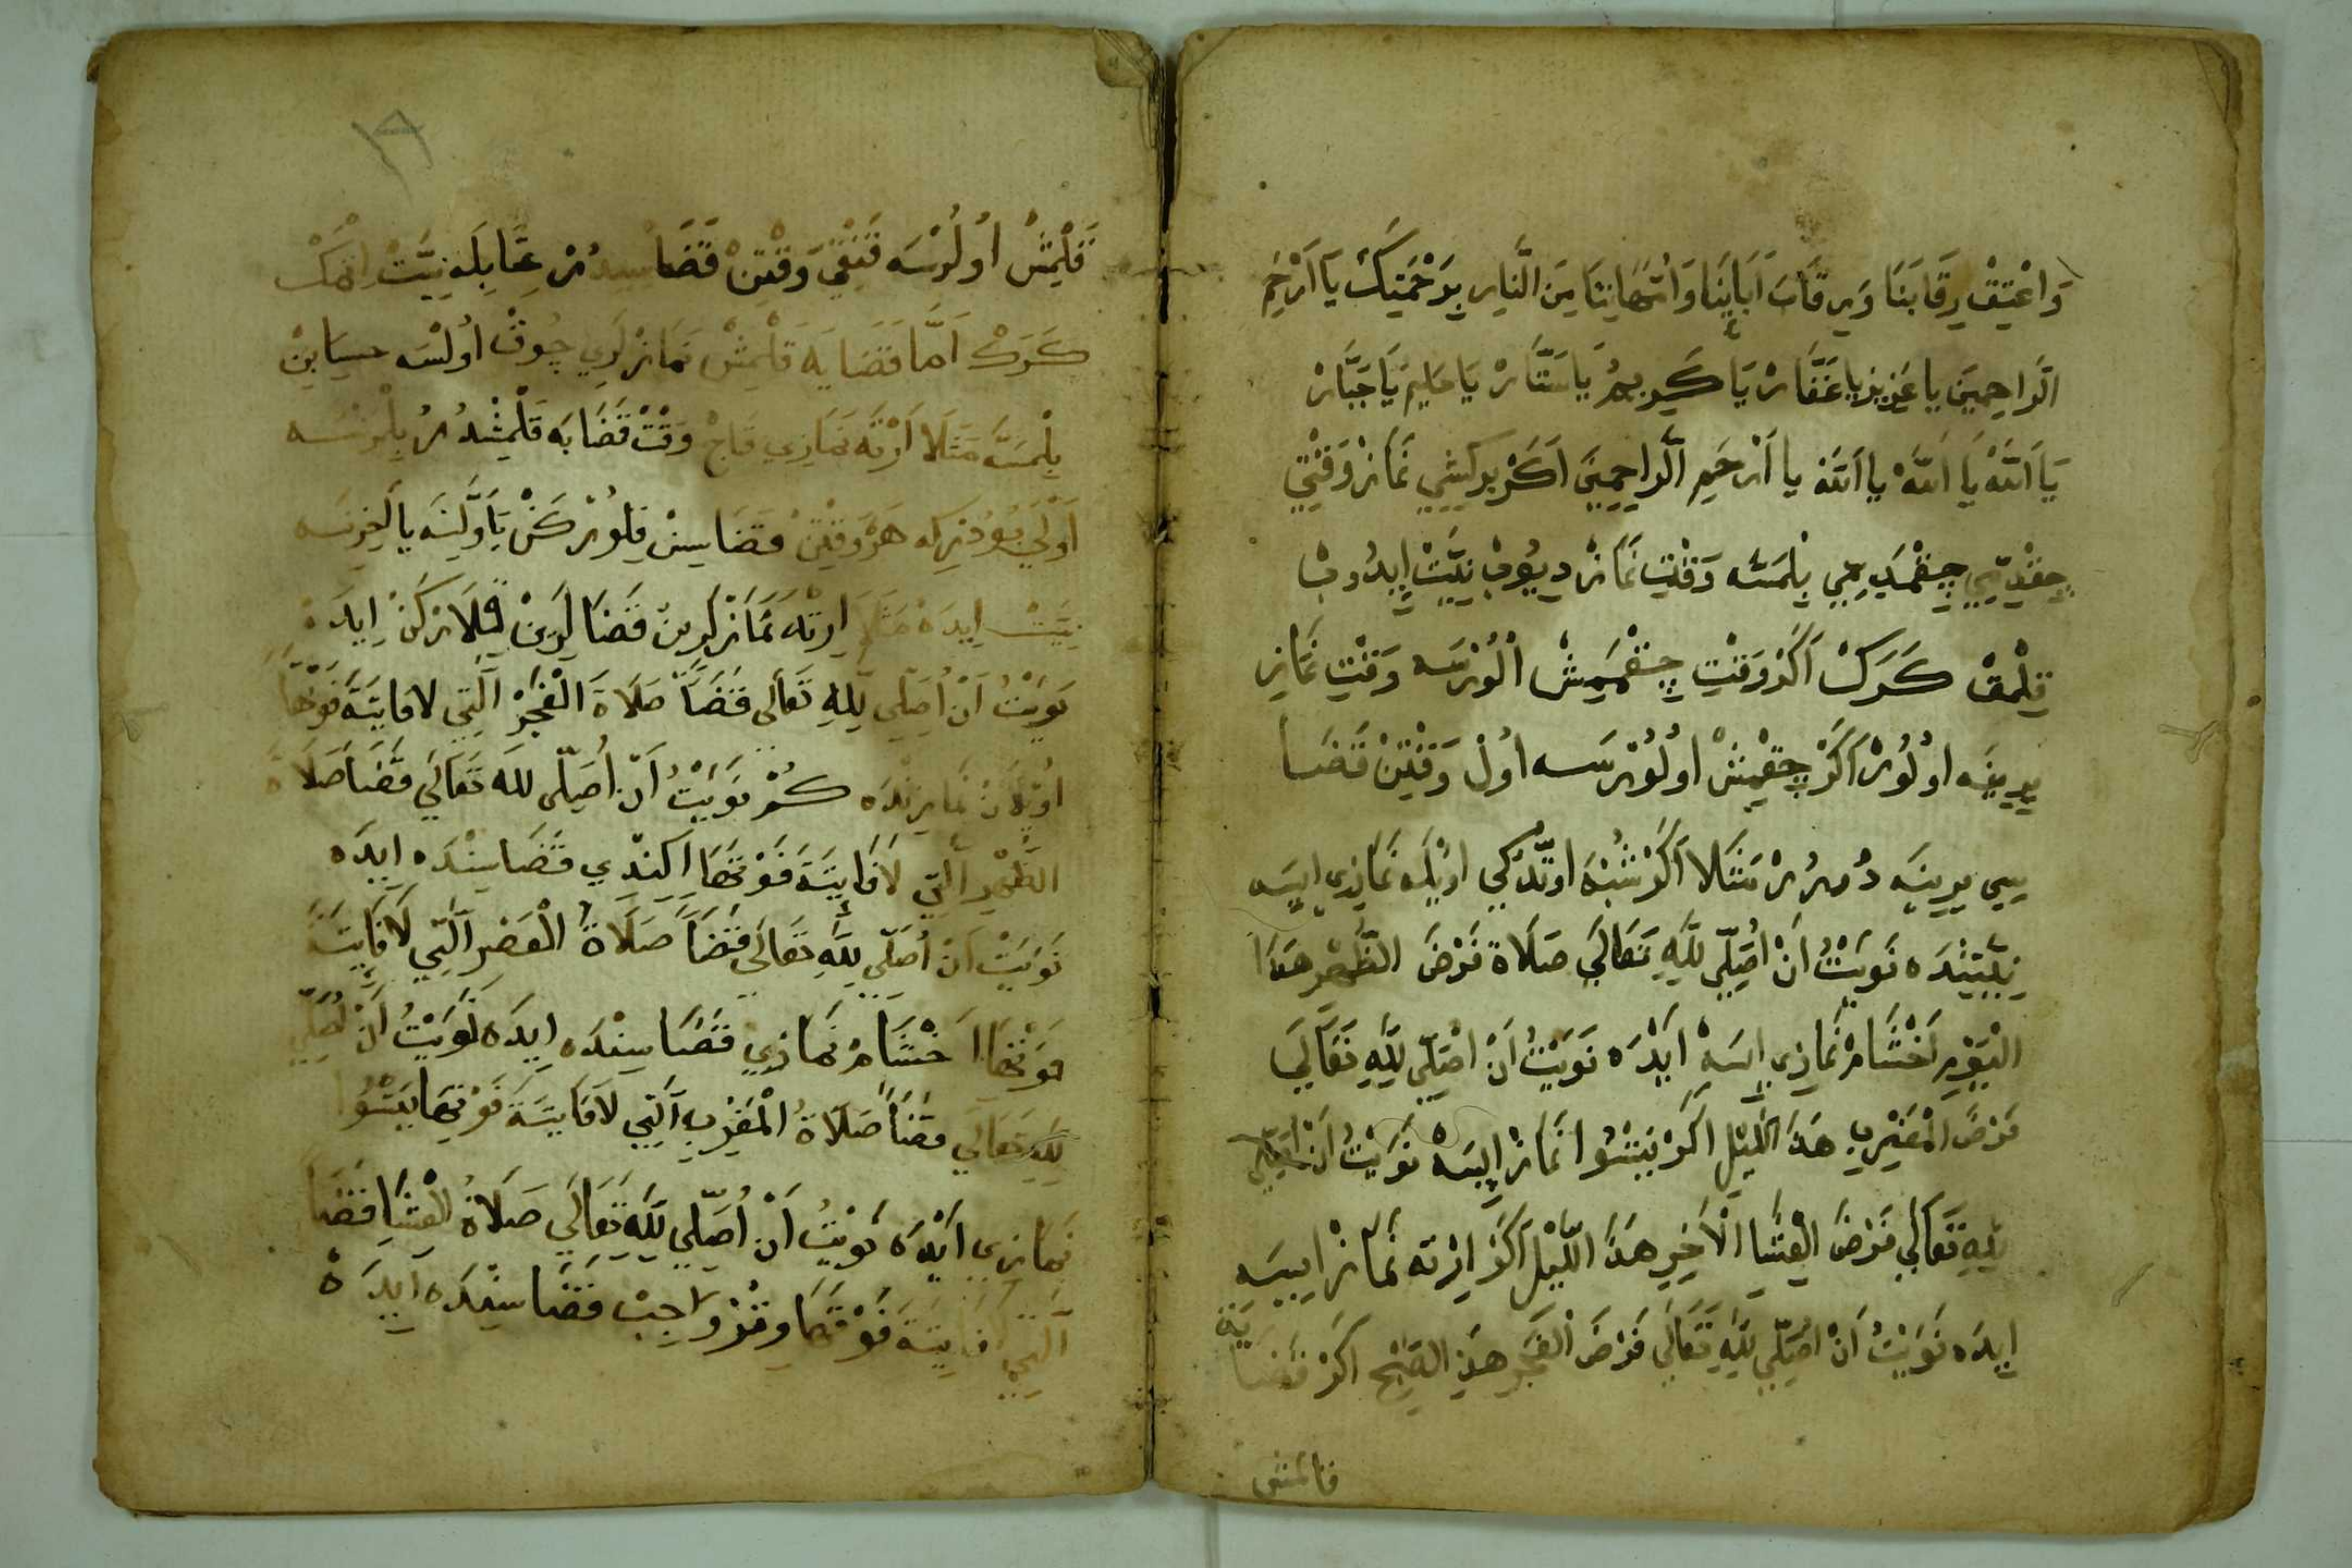 وَاعْتِقْ رِقَابَنَا وَرِقَابَ اَبَايِنَا وَاُمَّهَاتِنَا مِنَ النَّارِ بِرَحْمَتِكَ يَا اَرْحَمَ
الرَّاحِمِينَ يا عَزِيزُ يا غَفَّارْ يَا كَرِيمُ يَا سَتَّارْ يَا حَلِيمُ يَا جَبَّارْ
يَا اَللّٰهْ يَا اَللّٰهْ يا اَللّٰهْ يا اَرْحَمَ الرَّاحِمِينَ اَكَرْ بِر كِشِي نَمَازْ وَقْتِي
چِقْدِمِي چِقْمَدِمِي بِلْمَسَه وَقْتِ نَمَازْ دِيُوبْ نِيَّتْ اِيدُوبْ
قِلْمَقْ كَرَكْ اَكَرْ وَقْتِ چِقْمَمِشْ اُلُرْسَه وَقْتِ نَمَازِ
يِرِينَه اوُلُورْ اَكَرْ چِقْمِشْ اوُلُورْسَه اوُلْ وَقْتِنْ قَضَا
سِي يِرِينَه دُرُرْ مَثَلَا اَكَرْ شُبْهَ اوتْدُكِي اوُيْلَه نَمَازِي اِيسَه
نِيَّتِنْدَه نَوَيْتُ اَنْ اُصَلِّيَ لِلّٰهِ تَعَالَي صَلَاةَ فَرْضَ الظُّهْرِ هَذَا
الْيَوْمِ اَخْشَامْ نَمَازِي اِيسَهْ اَيْدَه نَوَيْتُ اَنْ اُصَلِّيَ لِلّٰهِ تَعَالَي
فَرْضَ الْمَغْرِبِ هَذَا اللَّيْلِ اَكَرْ يَتْسُوا نَمَازْ اِيسَهْ نَوَيْتُ اَنْ اُصَلِّيَ
لِلّٰهِ تَعَالَي فَرْضَ الْعِشَا الْاَخِيرِ هَذَا اللَّيْلِ اَكَرْ اِرْتَه نَمَازْ اِيسَه
اِيدَه نَوَيْتُ اَنْ اُصَلِّيَ لِلّٰهِ تَعَالَي فَرْضَ الْفَجْرِ هَذَا الصُّبْحِ اَكَرْ قَضَايَه
قالمش
قَلْمِشْ اوُلُرْسَه قَنْقِي وَقْتِنْ قَضَاسِيدُرْ عَمَّا بِلَه نِيَّتْ اِتْمَكْ
كَرَكْ اَمَّا قَضَايَه قَلْمِشْ نَمَازْلَرِي چُوقْ اُولْسَه حِسَابِنْ
بِلْمَسَه مَثَلَا اَرْتَه نَمَازِي قَاچْ وَقْتْ قَضَايَه قَلْمِشْدُرْ بِلْمَزْسَه
اَوْلَي بُودُرِكِه هَرْ وَقْتِنْ قَضَاسِنْ قِلُورْكَنْ يَا اَوَّلِنَه يا اَخِرِنَه
نِيَّتْ اِيدَه مَثَلَا اِرْتَه نَمَازْلَرِينْ قَضَالَرِينْ قِلَارْكَنْ اِيدَه
نَوَيْتُ اَنْ اُصَلِّي لِلّٰهِ تَعَالَي قَضَاً صَلَاةَ الْفَجْرْ اَلَّتِي لافَايِتَةَ فَوْتَهَا
اُوْيْلَنْ نَمَازِنْدَه كُرْ نَوَيْتُ اَنْ اُصَلِّي لِلّٰهِ تَعَالَي قَضَاً صَلَاةَ
الظُّهْرِ اَلَّتِي لَافَايِتَةَ فَوْتَهَا اِكِنْدِي قَضَاسِنْدَه اِيدَه
نَوَيْتُ اَنْ اُصَلِّي لِلّٰهِ تَعَالَي قَضَاً صَلَاةُ الْعَصْرِ اَلَّتِي لَافَايِتَةَ
فَوْتَهَا اَخْشَامْ نَمَازِي قَضَاسِنْدَه اِيدَه نَوَيْتُ اَنْ اُصَلِّي
لِلّٰهِ تَعَالَي قَضَاً صَلَاةُ الْمَغْرِبِ اَلَّتِي لَافَايِتَةَ فَوْتَهَا يَتْسُوا
نَمَازِي اَيْدَه نَوَيْتُ اَنْ اُصَلِّي لِلّٰهِ تَعَالَي صَلَاةُ الْعِشَا قَضَاً
اَلَّتِي فَايِتَةَ فَوْتَهَا وِتْرُ وَاجِبْ قَضَاسِنْدَه اَيْدَه